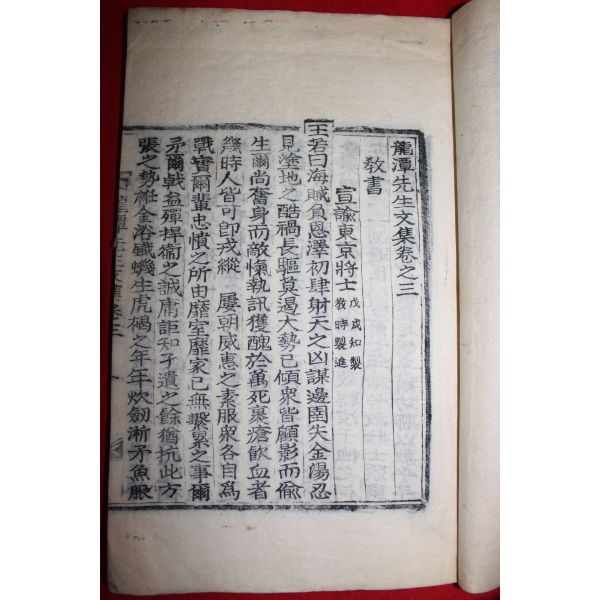 龍潭先生文集卷之三
敎書
宣諭東京將士 戊戌知製
敎時製進
王若曰海賊負恩澤初肆射天之凶謀邊圉失金湯忍
見塗地之酷禍長驅莫遏大勢已傾衆皆顧影而偸
生爾尚奮身而敵愾執訊獲醜於萬死裹瘡飮血者
幾時人皆可卽戎縱 屢朝威惠之素服衆各自爲
戰實爾輩忠憤之所由靡室靡家已無繫累之事爾
矛爾戟益殫捍衛之誠庸詎知孑遺之餘猶抗此方
張之勢衽金浴鐵蟣生虎褐之年年炊劒淅矛魚服
龍潭先生文集卷三 一